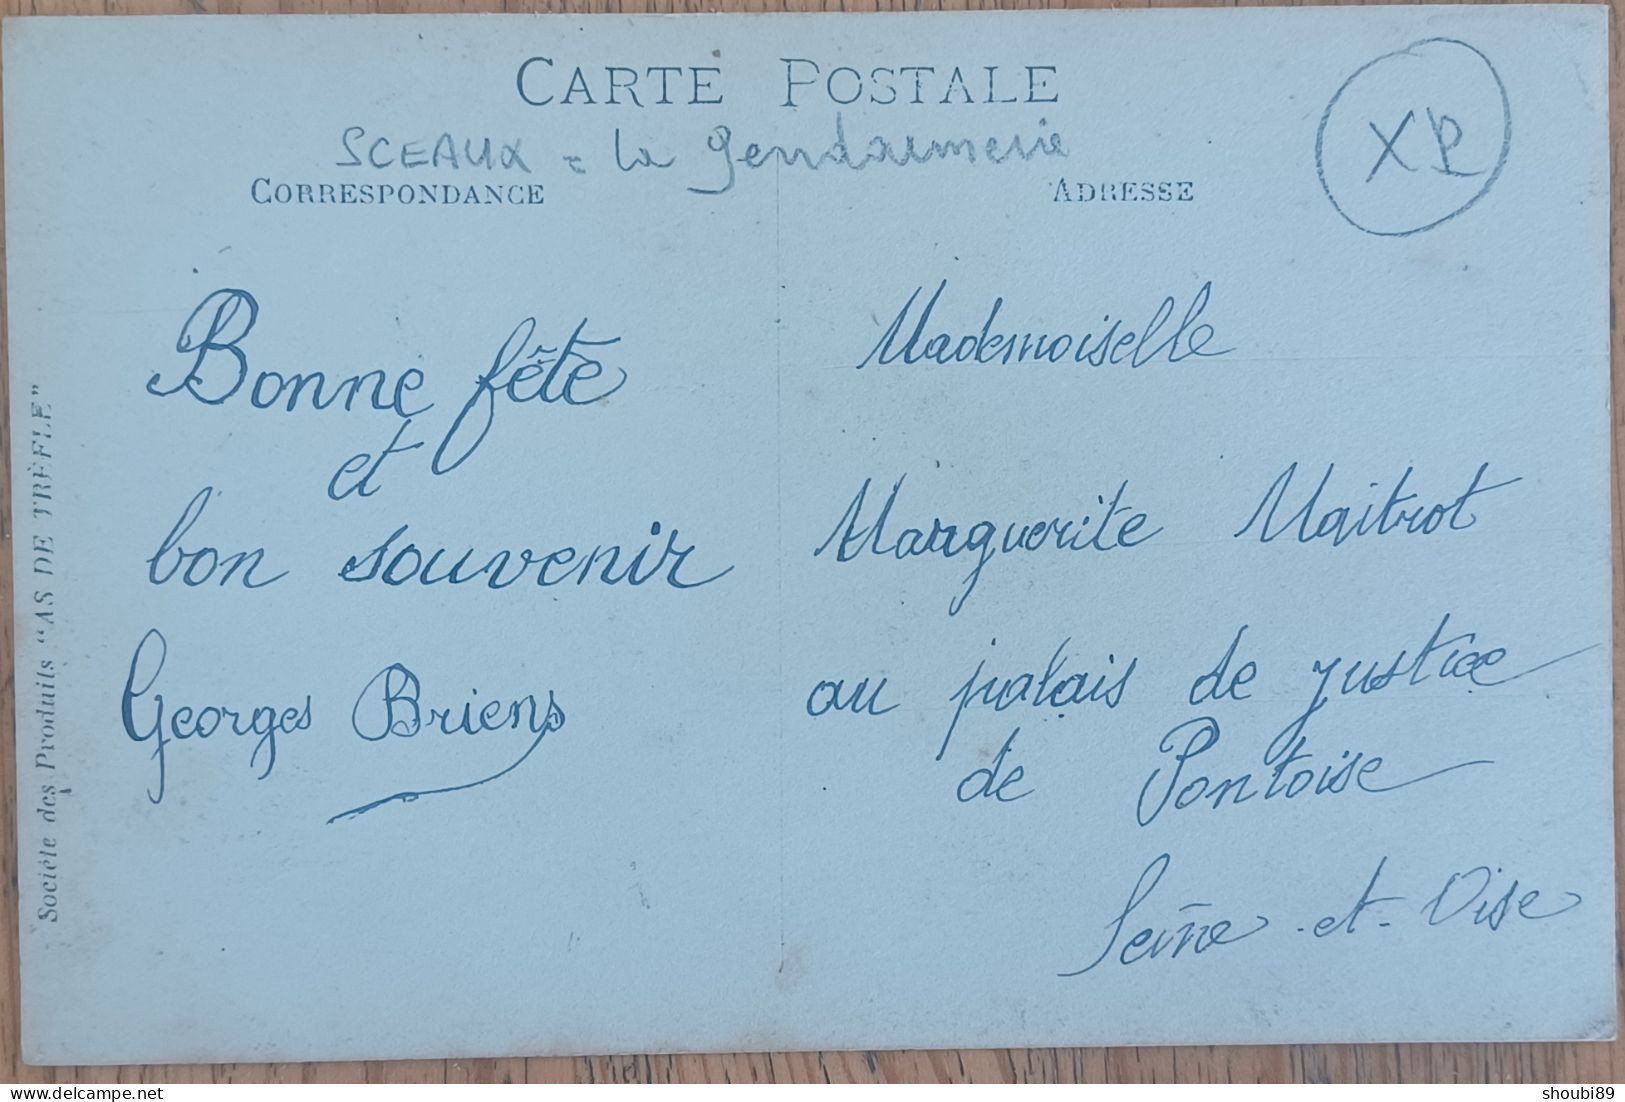 CARTE POSTALE
SCEAUX = la gendarmerie
CORRESPONDANCE
ADRESSE
Bonne fête
et
bon souvenir
Georges Briens
Mademoiselle
Marguerite Maitrot
au palais de justice
de Pontoise
Seine-et-Oise
Société des Produits "AS DE TRÈFLE"
shoubi89